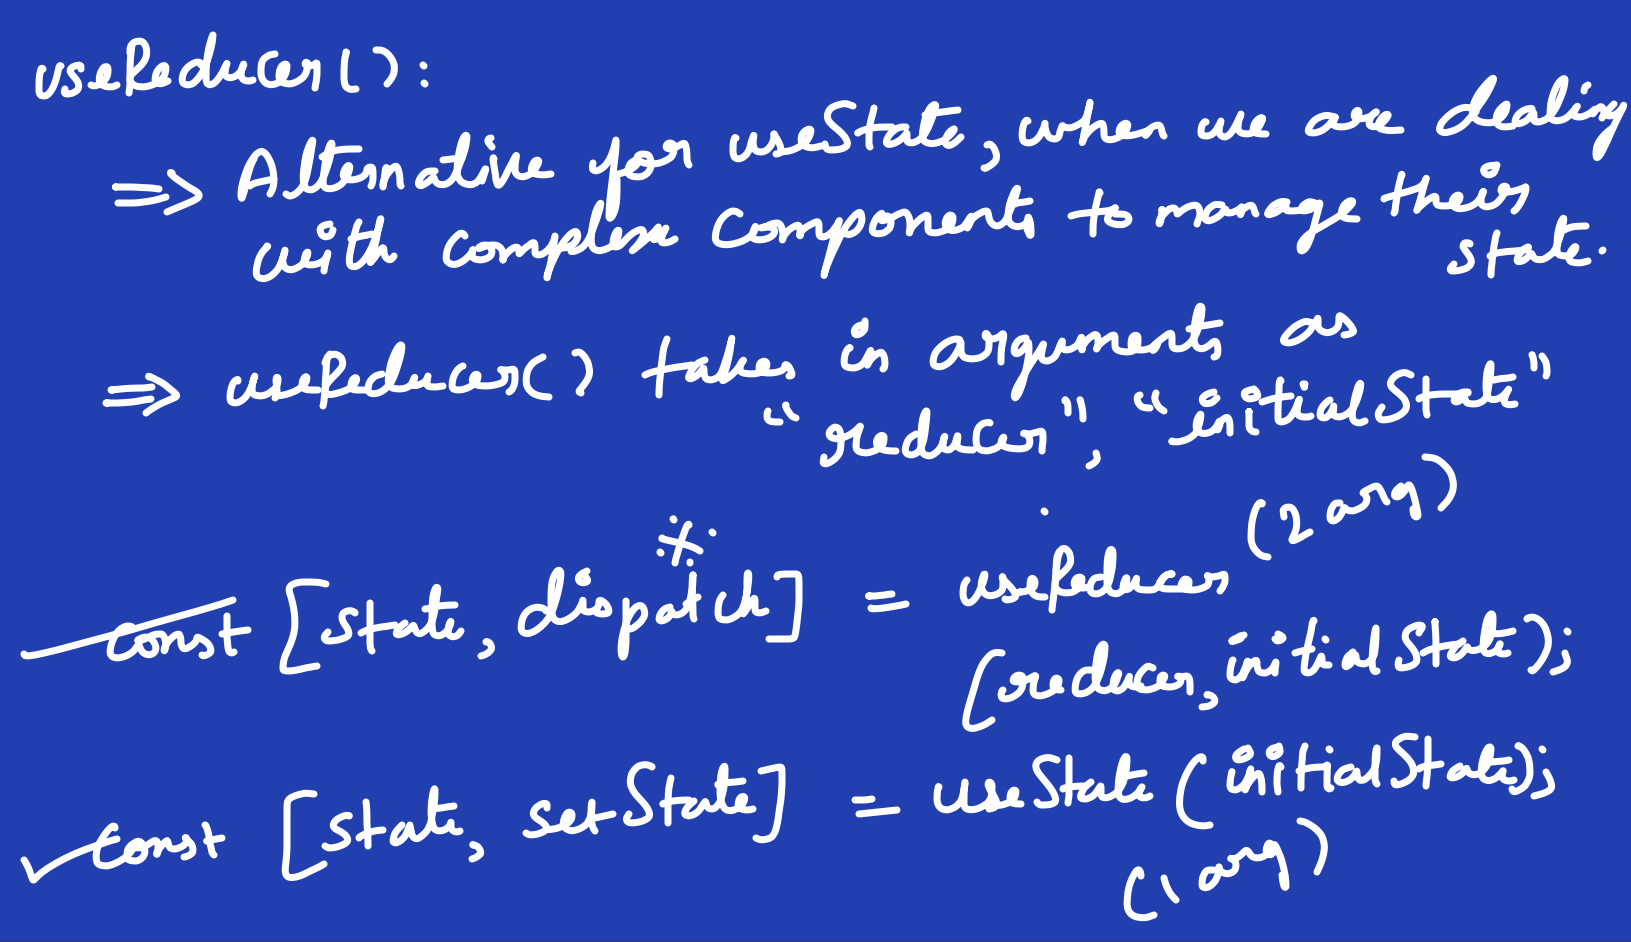 useReducer():
=> Alternative for useState, when we are dealing
with complex components to manage their
state.
=> useReducer() takes in arguments as
"reducer", "initialState"
(2 arg)
const [state, dispatch] = useReducer
(reducer, initialState);
const [state, setState] = useState (initialState);
(1 arg)